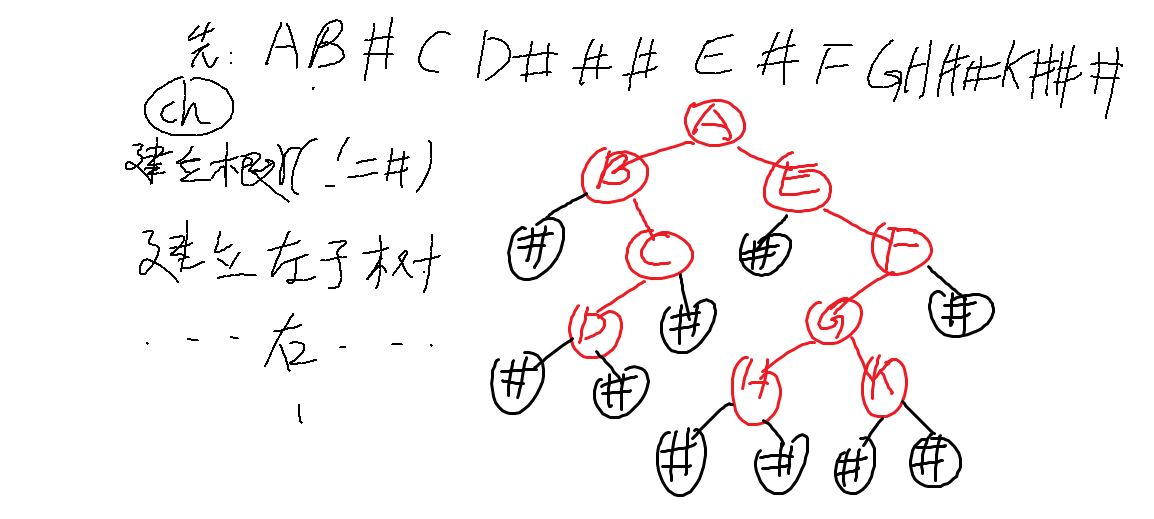 先: A B # C D # # # E # F G H # # K # # #
ch
建立根 (!=#)
建立左子树
· - - - 右 · - - ·
A
B E
# C # F
D # G #
# # H K
# # # #